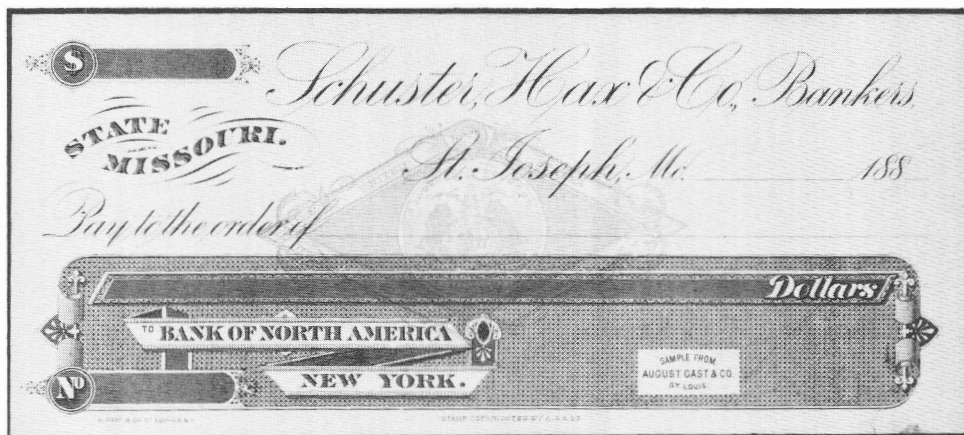 $
Schuster, Hax & Co., Bankers,
STATE
MISSOURI.
St. Joseph, Mo. 188
Pay to the order of
Dollars
TO BANK OF NORTH AMERICA
NEW YORK.
No
SAMPLE FROM
AUGUST GAST & CO.